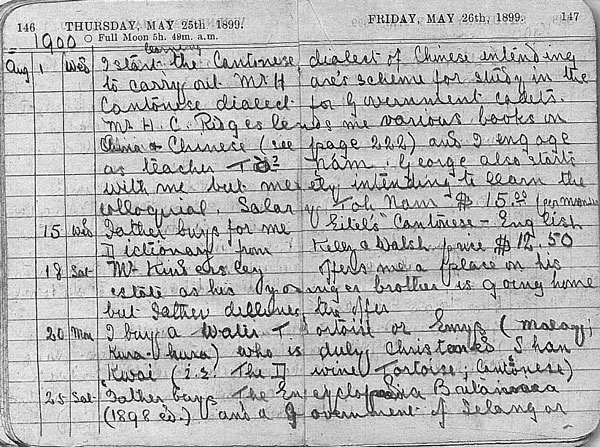 146 THURSDAY, MAY 25th 1899. FRIDAY, MAY 26th, 1899. 147
1900 ○ Full Moon 5h. 49m. a.m.
learning
Aug 1 Wed I start the Cantonese dialect of Chinese intending
to carry out Mr Hare's scheme for study in the
Cantonese dialect for Government cadets.
Mr H. C. Ridges lends me various books on
China & Chinese (see page 222) and I engage
as teacher Toh Nam. George also starts
with me but merely intending to learn the
colloquial. Salary Toh Nam $15.00 (per month)
15 Wed Father buys for me Eitel's Cantonese-English
Dictionary from Kelly & Walsh price $12.50
18 Sat Mr Kindersley offers me a place on his
estate as his younger brother is going home
but Father declines the offer
20 Mon I buy a Water Tortoise or Emys (Malay;
Kura-kura) who is duly christened Shan
Kwai (i.e. The Divine Tortoise; Cantonese)
25 Sat Father buys The Encyclopædia Britannica
(1898 ed.) and a Government of Selangor